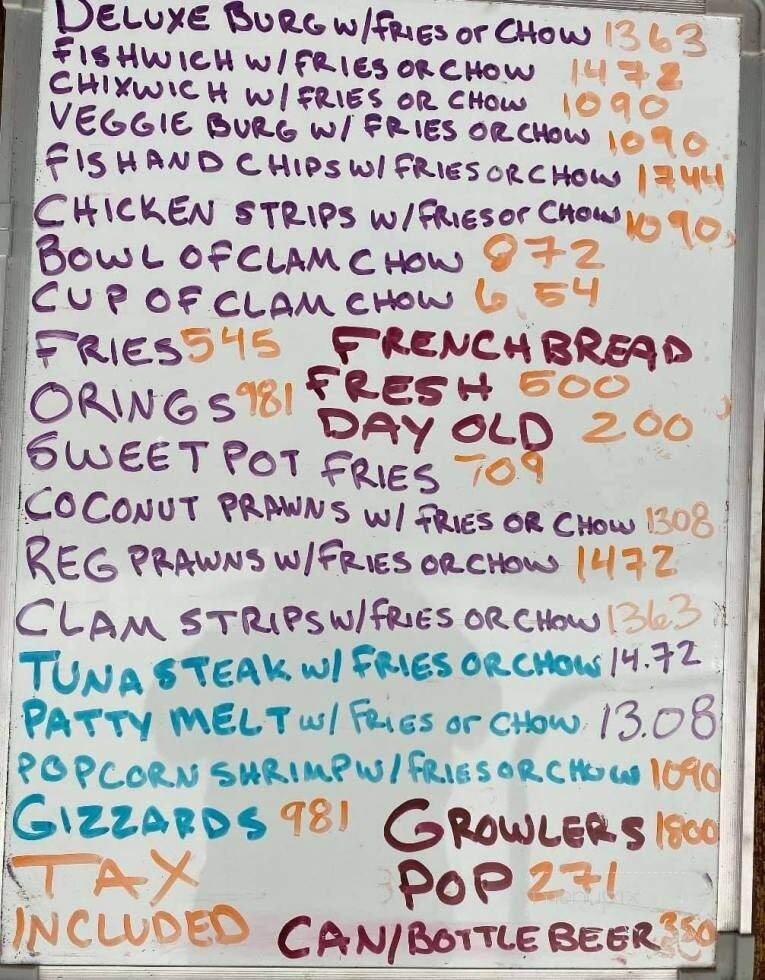 DELUXE BURG W/FRIES or CHOW 1363
FISHWICH W/FRIES OR CHOW 1472
CHIXWICH W/FRIES OR CHOW 1090
VEGGIE BURG W/ FRIES OR CHOW 1090
FISH AND CHIPS W/ FRIES OR CHOW 1744
CHICKEN STRIPS W/FRIES or CHOW 1090
BOWL OF CLAM CHOW 872
CUP OF CLAM CHOW 654
FRIES 545 FRENCH BREAD
ORINGS 981 FRESH 500
DAY OLD 200
SWEET POT FRIES 709
COCONUT PRAWNS W/ FRIES OR CHOW 1308
REG PRAWNS W/FRIES OR CHOW 1472
CLAM STRIPS W/FRIES OR CHOW 1363
TUNA STEAK W/ FRIES OR CHOW 14.72
PATTY MELT W/ FRIES or CHOW 13.08
POPCORN SHRIMP W/FRIES OR CHOW 1090
GIZZARDS 981 GROWLERS 1800
TAX POP 271
INCLUDED CAN/BOTTLE BEER 350